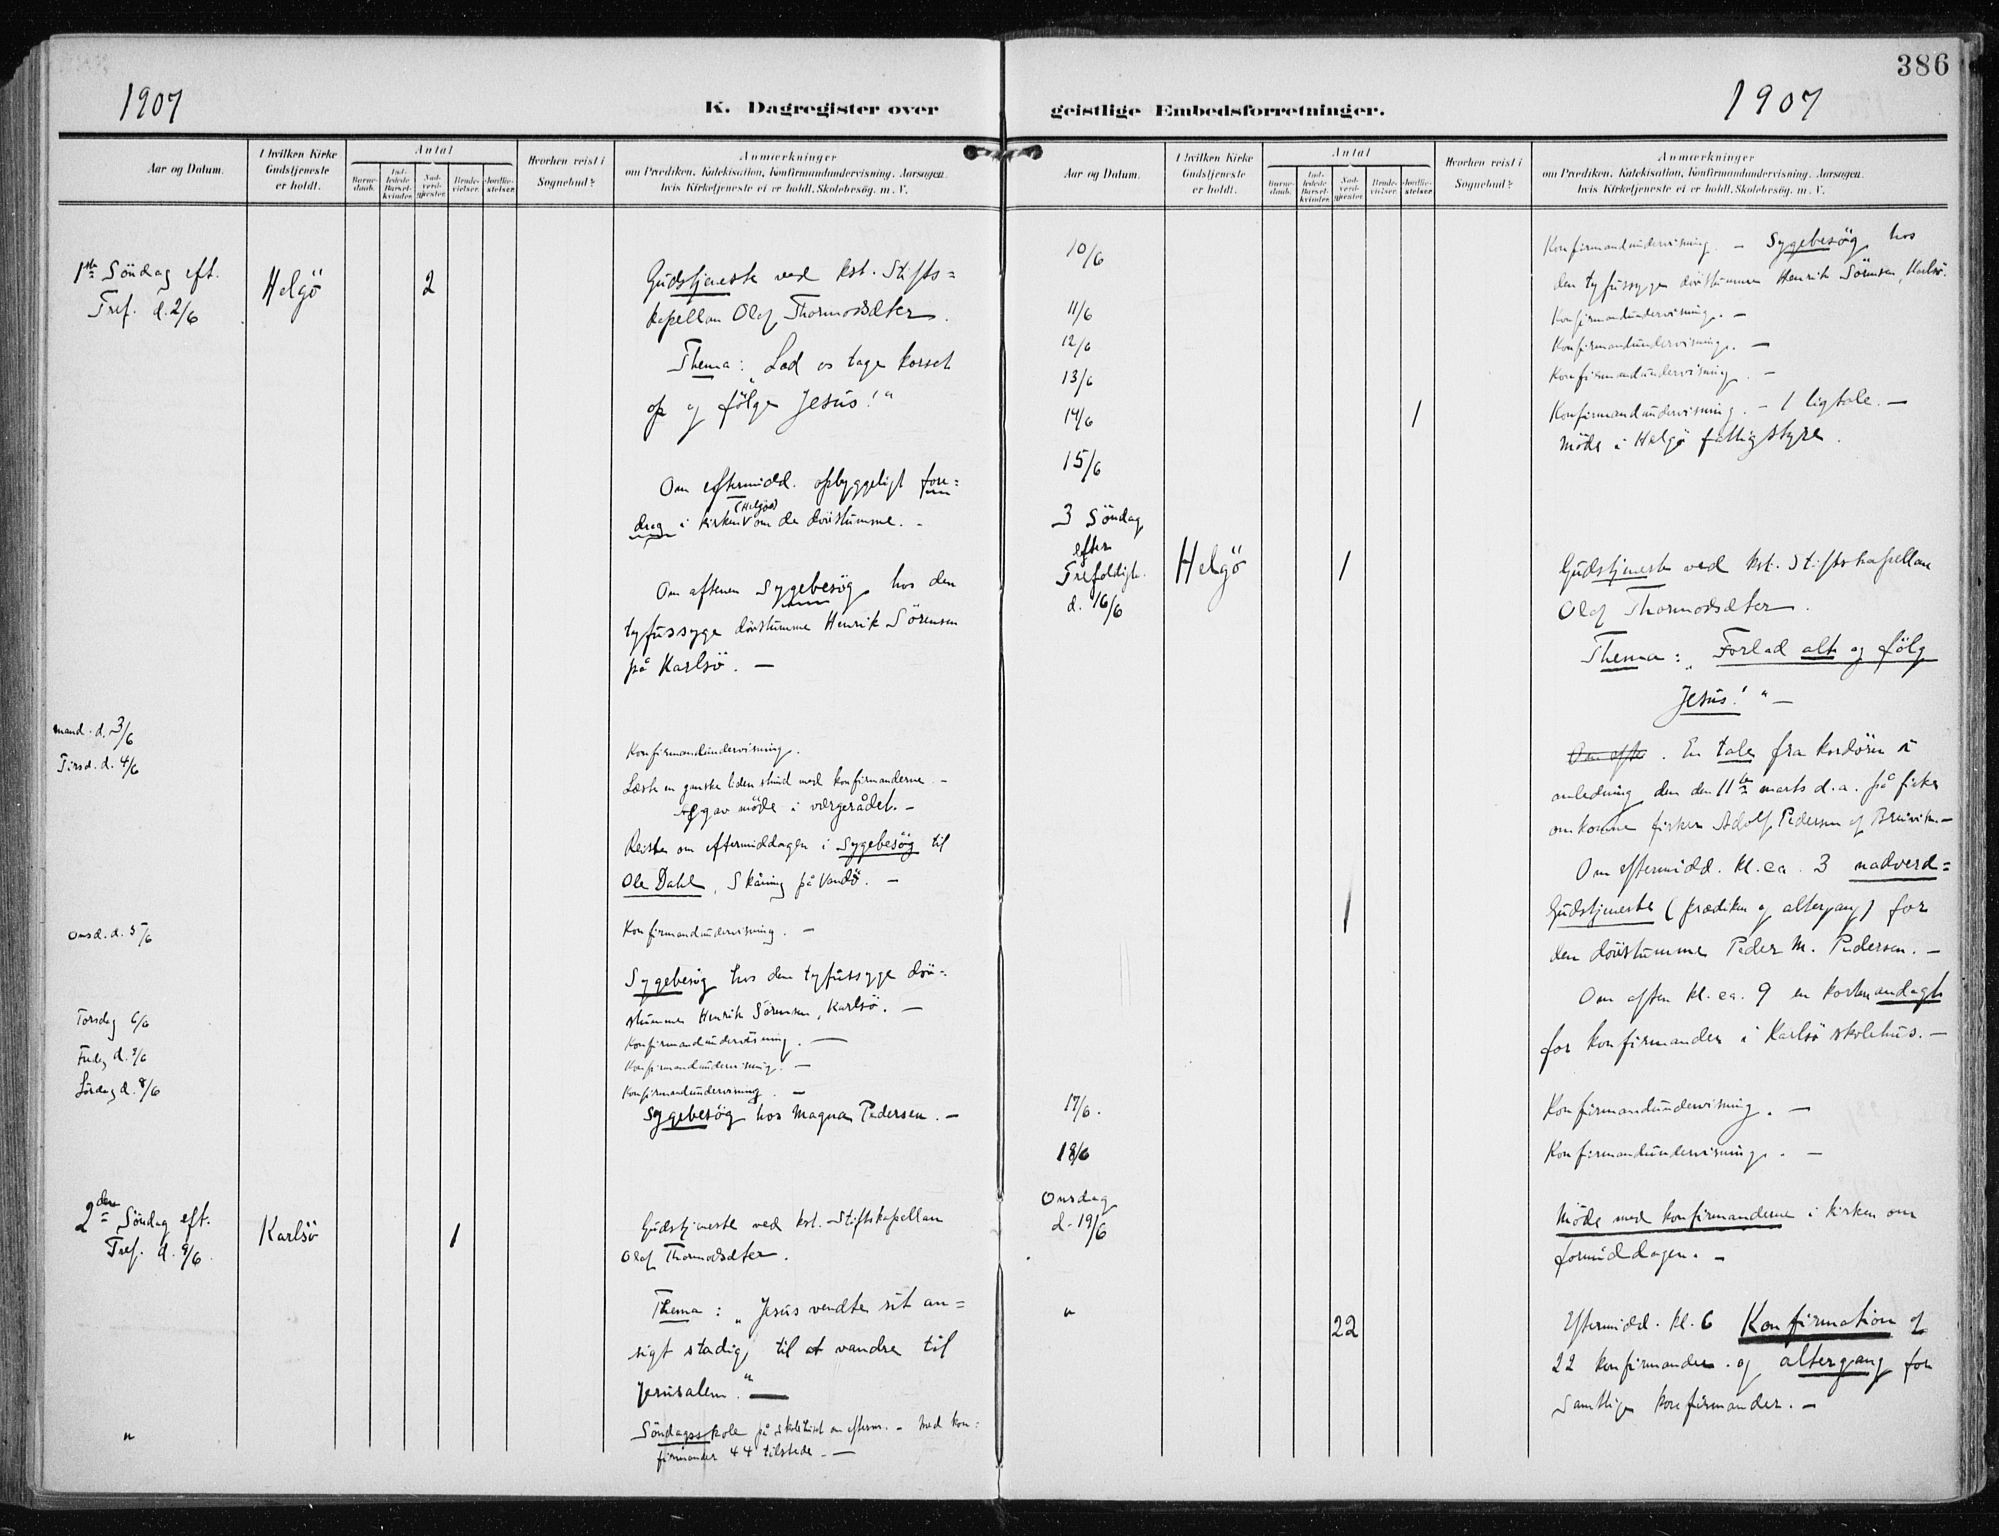 386
1907
1907
K. Dagregister over
geistlige Embedsforretninger.
Aar og Datum.
I hvilken Kirke Gudstjeneste er holdt.
Antal
Barnedaab.
Indledede Barselkvinder.
Nadverdgjester.
Brudevielser.
Jordfæstelser.
Hvorhen reist i Sognebud?
Anmærkninger
om Prædiken, Katekisation, Konfirmandundervisning, Aarsagen, hvis Kirketjeneste ei er holdt, Skolebesøg, m. V.
1ste Söndag eft.
Tref. d. 2/6
Helgö
2
Gudstjeneste ved kst. Stifts=
kapellan Olaf Thormodsæter.
Thema: „Lad os tage korset
op og følge Jesus!"
Om eftermidd. opbyggeligt fore=
(Helgös)
drag i kirken om de dövstumme. -
Om aftenen Sygebesög hos den
tyfussyge dövstumme Henrik Sörensen
på Karlsö. -
mand. d. 3/6
Konfirmandundervisning.
Tirsd. d. 4/6
Læste en ganske liden stund med konfirmanderne. -
møde i værgerådet. -
Reiste om eftermiddagen i Sygebesøg til
Ole Dahl, Skåning på Vandö. -
Onsd. d. 5/6
Konfirmandundervisning. -
Sygebesög hos den tyfussyge döv=
stumme Henrik Sörensen, Karlsö. -
Torsdag 6/6
Konfirmandundervisning. -
Fredag d. 7/6
Konfirmandundervisning. -
Lördag d. 8/6
Konfirmandundervisning. -
Sygebesög hos Magna Pedersen. -
2den Söndag eft.
Tref. d. 9/6.
Karlsö
1
Gudstjeneste ved kst. Stiftskapellan
Olaf Thormodsæter.
Thema: „Jesus vendte sit an=
sigt stadig til at vandre til
Jerusalem." -
"
Söndagsskole på skolehuset om efterm. - Med kon=
firmander 44 tilstede. -
Aar og Datum.
I hvilken Kirke Gudstjeneste er holdt.
Antal
Barnedaab.
Indledede Barselkvinder.
Nadverdgjester.
Brudevielser.
Jordfæstelser.
Hvorhen reist i Sognebud?
Anmærkninger
om Prædiken, Katekisation, Konfirmandundervisning, Aarsagen, hvis Kirketjeneste ei er holdt, Skolebesøg, m. V.
10/6
Konfirmandundervisning. - Sygebesög hos
den tyfussyge dövstumme Henrik Sörensen, Karlsö.
11/6
Konfirmandundervisning. -
12/6
Konfirmandundervisning. -
13/6
Konfirmandundervisning. -
14/6
1
Konfirmandundervisning. - 1 ligtale. -
Möde i Helgö fattigstyre.
15/6
3 Söndag
efter
Trefoldigh.
d. 16/6
Helgö
1
Gudstjeneste ved kst. Stiftskapellan
Olaf Thormodsæter.
Thema: „Forlad alt og fölg
Jesus!" -
Om efte. En tale fra kordören i
anledning den den 11te marts d. a. på fiske
omkomne fisker Adolf Pedersen af Breivik. -
Om eftermidd. kl. ca. 3 nadverd=
1
Gudstjeneste (prædiken og altergang) for
den dövstumme Peder M. Pedersen. -
Om aften kl. ca. 9 en kort andagt
for konfirmander i Karlsö skolehus. -
17/6.
Konfirmandundervisning. -
18/6
Konfirmandundervisning. -
Onsdag
d. 19/6
Möde med konfirmanderne i kirken om
formiddagen. -
"
22
Eftermidd. kl. 6 Konfirmation af
22 konfirmander og altergang for
samtlige konfirmander. -